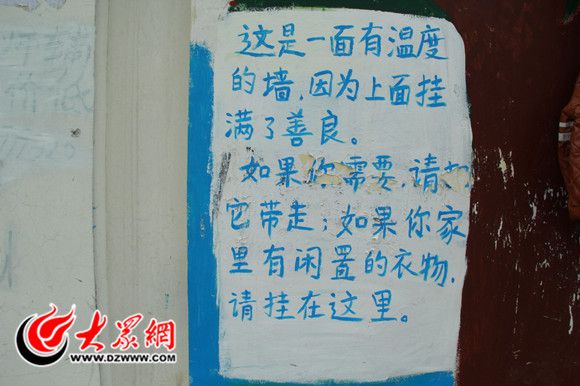 这是一面有温度
的墙，因为上面挂
满了善良。
如果你需要，请把
它带走；如果你家
里有闲置的衣物，
请挂在这里。
大众網
WWW.DZWWW.COM